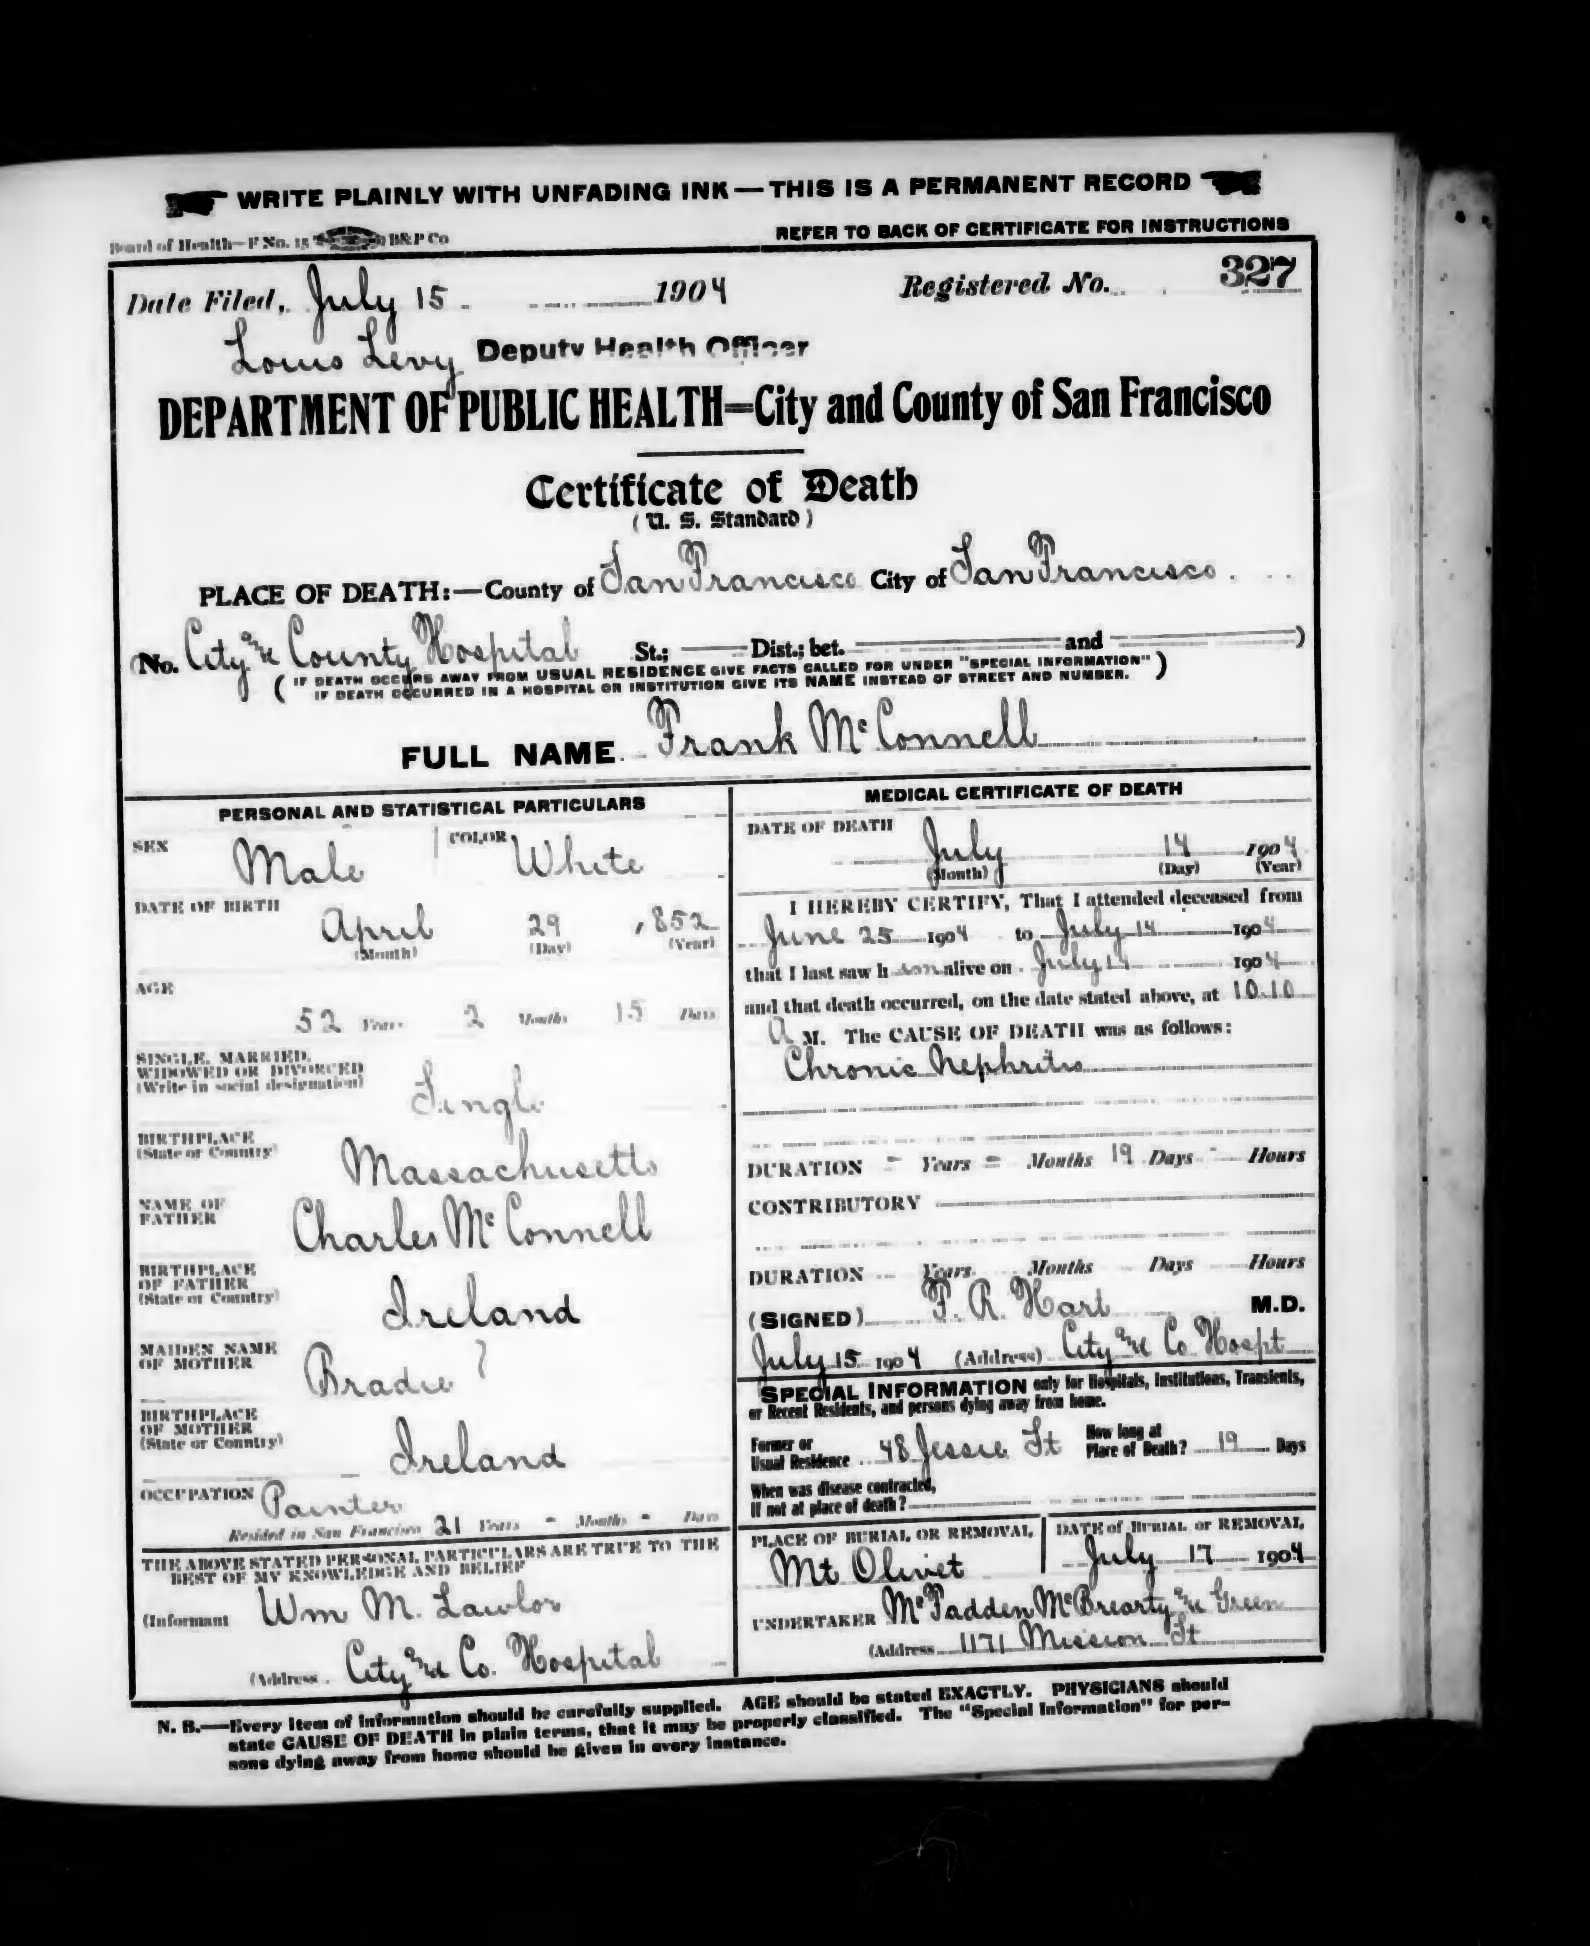 WRITE PLAINLY WITH UNFADING INK—THIS IS A PERMANENT RECORD
Board of Health—F No. 15 B&P Co
REFER TO BACK OF CERTIFICATE FOR INSTRUCTIONS
Date Filed, July 15 1904 Registered No. 327
Louis Levy Deputy Health Officer
DEPARTMENT OF PUBLIC HEALTH=City and County of San Francisco
Certificate of Death
(U. S. Standard)
PLACE OF DEATH:—County of San Francisco City of San Francisco
(No. City and County Hospital St.; Dist.; bet. and )
(IF DEATH OCCURS AWAY FROM USUAL RESIDENCE GIVE FACTS CALLED FOR UNDER "SPECIAL INFORMATION"
IF DEATH OCCURRED IN A HOSPITAL OR INSTITUTION GIVE ITS NAME INSTEAD OF STREET AND NUMBER.)
FULL NAME Frank McConnell
PERSONAL AND STATISTICAL PARTICULARS
SEX Male COLOR White
DATE OF BIRTH
April 29 , 852
(Month) (Day) (Year)
AGE
52 Years 2 Months 15 Days
SINGLE, MARRIED,
WIDOWED OR DIVORCED
(Write in social designation)
Single
BIRTHPLACE
(State or Country)
Massachusetts
NAME OF
FATHER
Charles McConnell
BIRTHPLACE
OF FATHER
(State or Country)
Ireland
MAIDEN NAME
OF MOTHER
Bradie ?
BIRTHPLACE
OF MOTHER
(State or Country)
Ireland
OCCUPATION Painter
Resided in San Francisco 21 Years - Months - Days
THE ABOVE STATED PERSONAL PARTICULARS ARE TRUE TO THE
BEST OF MY KNOWLEDGE AND BELIEF
(Informant Wm M. Lawlor
(Address City and Co. Hospital
MEDICAL CERTIFICATE OF DEATH
DATE OF DEATH
July 14 1904
(Month) (Day) (Year)
I HEREBY CERTIFY, That I attended deceased from
June 25 1904 to July 14 1904
that I last saw h im alive on July 14 1904
and that death occurred, on the date stated above, at 10.10
A M. The CAUSE OF DEATH was as follows:
Chronic Nephritis
DURATION - Years = Months 19 Days - Hours
CONTRIBUTORY
DURATION Years Months Days Hours
(SIGNED) F. R. Hart M.D.
July 15 1904 (Address) City and Co Hospt
SPECIAL INFORMATION only for Hospitals, Institutions, Transients,
or Recent Residents, and persons dying away from home.
Former or
Usual Residence 48 Jessie St
How long at
Place of Death? 19 Days
When was disease contracted,
If not at place of death?
PLACE OF BURIAL OR REMOVAL
Mt Olivet
DATE of BURIAL or REMOVAL
July 17 1904
UNDERTAKER McFadden McBrearty and Green
(Address 1171 Mission St
N. B.—Every item of information should be carefully supplied. AGE should be stated EXACTLY. PHYSICIANS should
state CAUSE OF DEATH in plain terms, that it may be properly classified. The "Special Information" for per-
sons dying away from home should be given in every instance.